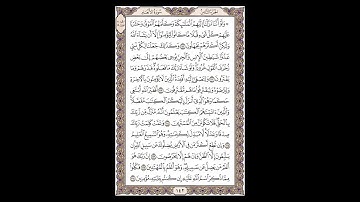 الجزء الثامن سورة الأنعام
۞ وَلَوْ أَنَّنَا نَزَّلْنَآ إِلَيْهِمُ ٱلْمَلَٰٓئِكَةَ وَكَلَّمَهُمُ ٱلْمَوْتَىٰ وَحَشَرْنَا
عَلَيْهِمْ كُلَّ شَىْءٍ قُبُلًا مَّا كَانُوا۟ لِيُؤْمِنُوٓا۟ إِلَّآ أَن يَشَآءَ ٱللَّهُ
وَلَٰكِنَّ أَكْثَرَهُمْ يَجْهَلُونَ ١١١ وَكَذَٰلِكَ جَعَلْنَا لِكُلِّ نَبِىٍّ
عَدُوًّا شَيَٰطِينَ ٱلْإِنسِ وَٱلْجِنِّ يُوحِى بَعْضُهُمْ إِلَىٰ بَعْضٍ
زُخْرُفَ ٱلْقَوْلِ غُرُورًا وَلَوْ شَآءَ رَبُّكَ مَا فَعَلُوهُ فَذَرْهُمْ
وَمَا يَفْتَرُونَ ١١٢ وَلِتَصْغَىٰٓ إِلَيْهِ أَفْـِٔدَةُ ٱلَّذِينَ لَا يُؤْمِنُونَ
بِٱلْـَٔاخِرَةِ وَلِيَرْضَوْهُ وَلِيَقْتَرِفُوا۟ مَا هُم مُّقْتَرِفُونَ ١١٣
أَفَغَيْرَ ٱللَّهِ أَبْتَغِى حَكَمًا وَهُوَ ٱلَّذِىٓ أَنزَلَ إِلَيْكُمُ ٱلْكِتَٰبَ مُفَصَّلًا
وَٱلَّذِينَ ءَاتَيْنَٰهُمُ ٱلْكِتَٰبَ يَعْلَمُونَ أَنَّهُۥ مُنَزَّلٌ مِّن رَّبِّكَ
بِٱلْحَقِّ فَلَا تَكُونَنَّ مِنَ ٱلْمُمْتَرِينَ ١١٤ وَتَمَّتْ كَلِمَتُ رَبِّكَ
صِدْقًا وَعَدْلًا لَّا مُبَدِّلَ لِكَلِمَٰتِهِۦ وَهُوَ ٱلسَّمِيعُ ٱلْعَلِيمُ
١١٥ وَإِن تُطِعْ أَكْثَرَ مَن فِى ٱلْأَرْضِ يُضِلُّوكَ عَن سَبِيلِ ٱللَّهِ
إِن يَتَّبِعُونَ إِلَّا ٱلظَّنَّ وَإِنْ هُمْ إِلَّا يَخْرُصُونَ ١١٦ إِنَّ رَبَّكَ هُوَ
أَعْلَمُ مَن يَضِلُّ عَن سَبِيلِهِۦ وَهُوَ أَعْلَمُ بِٱلْمُهْتَدِينَ ١١٧ فَكُلُوا۟
مِمَّا ذُكِرَ ٱسْمُ ٱللَّهِ عَلَيْهِ إِن كُنتُم بِـَٔايَٰتِهِۦ مُؤْمِنِينَ ١١٨
١٤٢